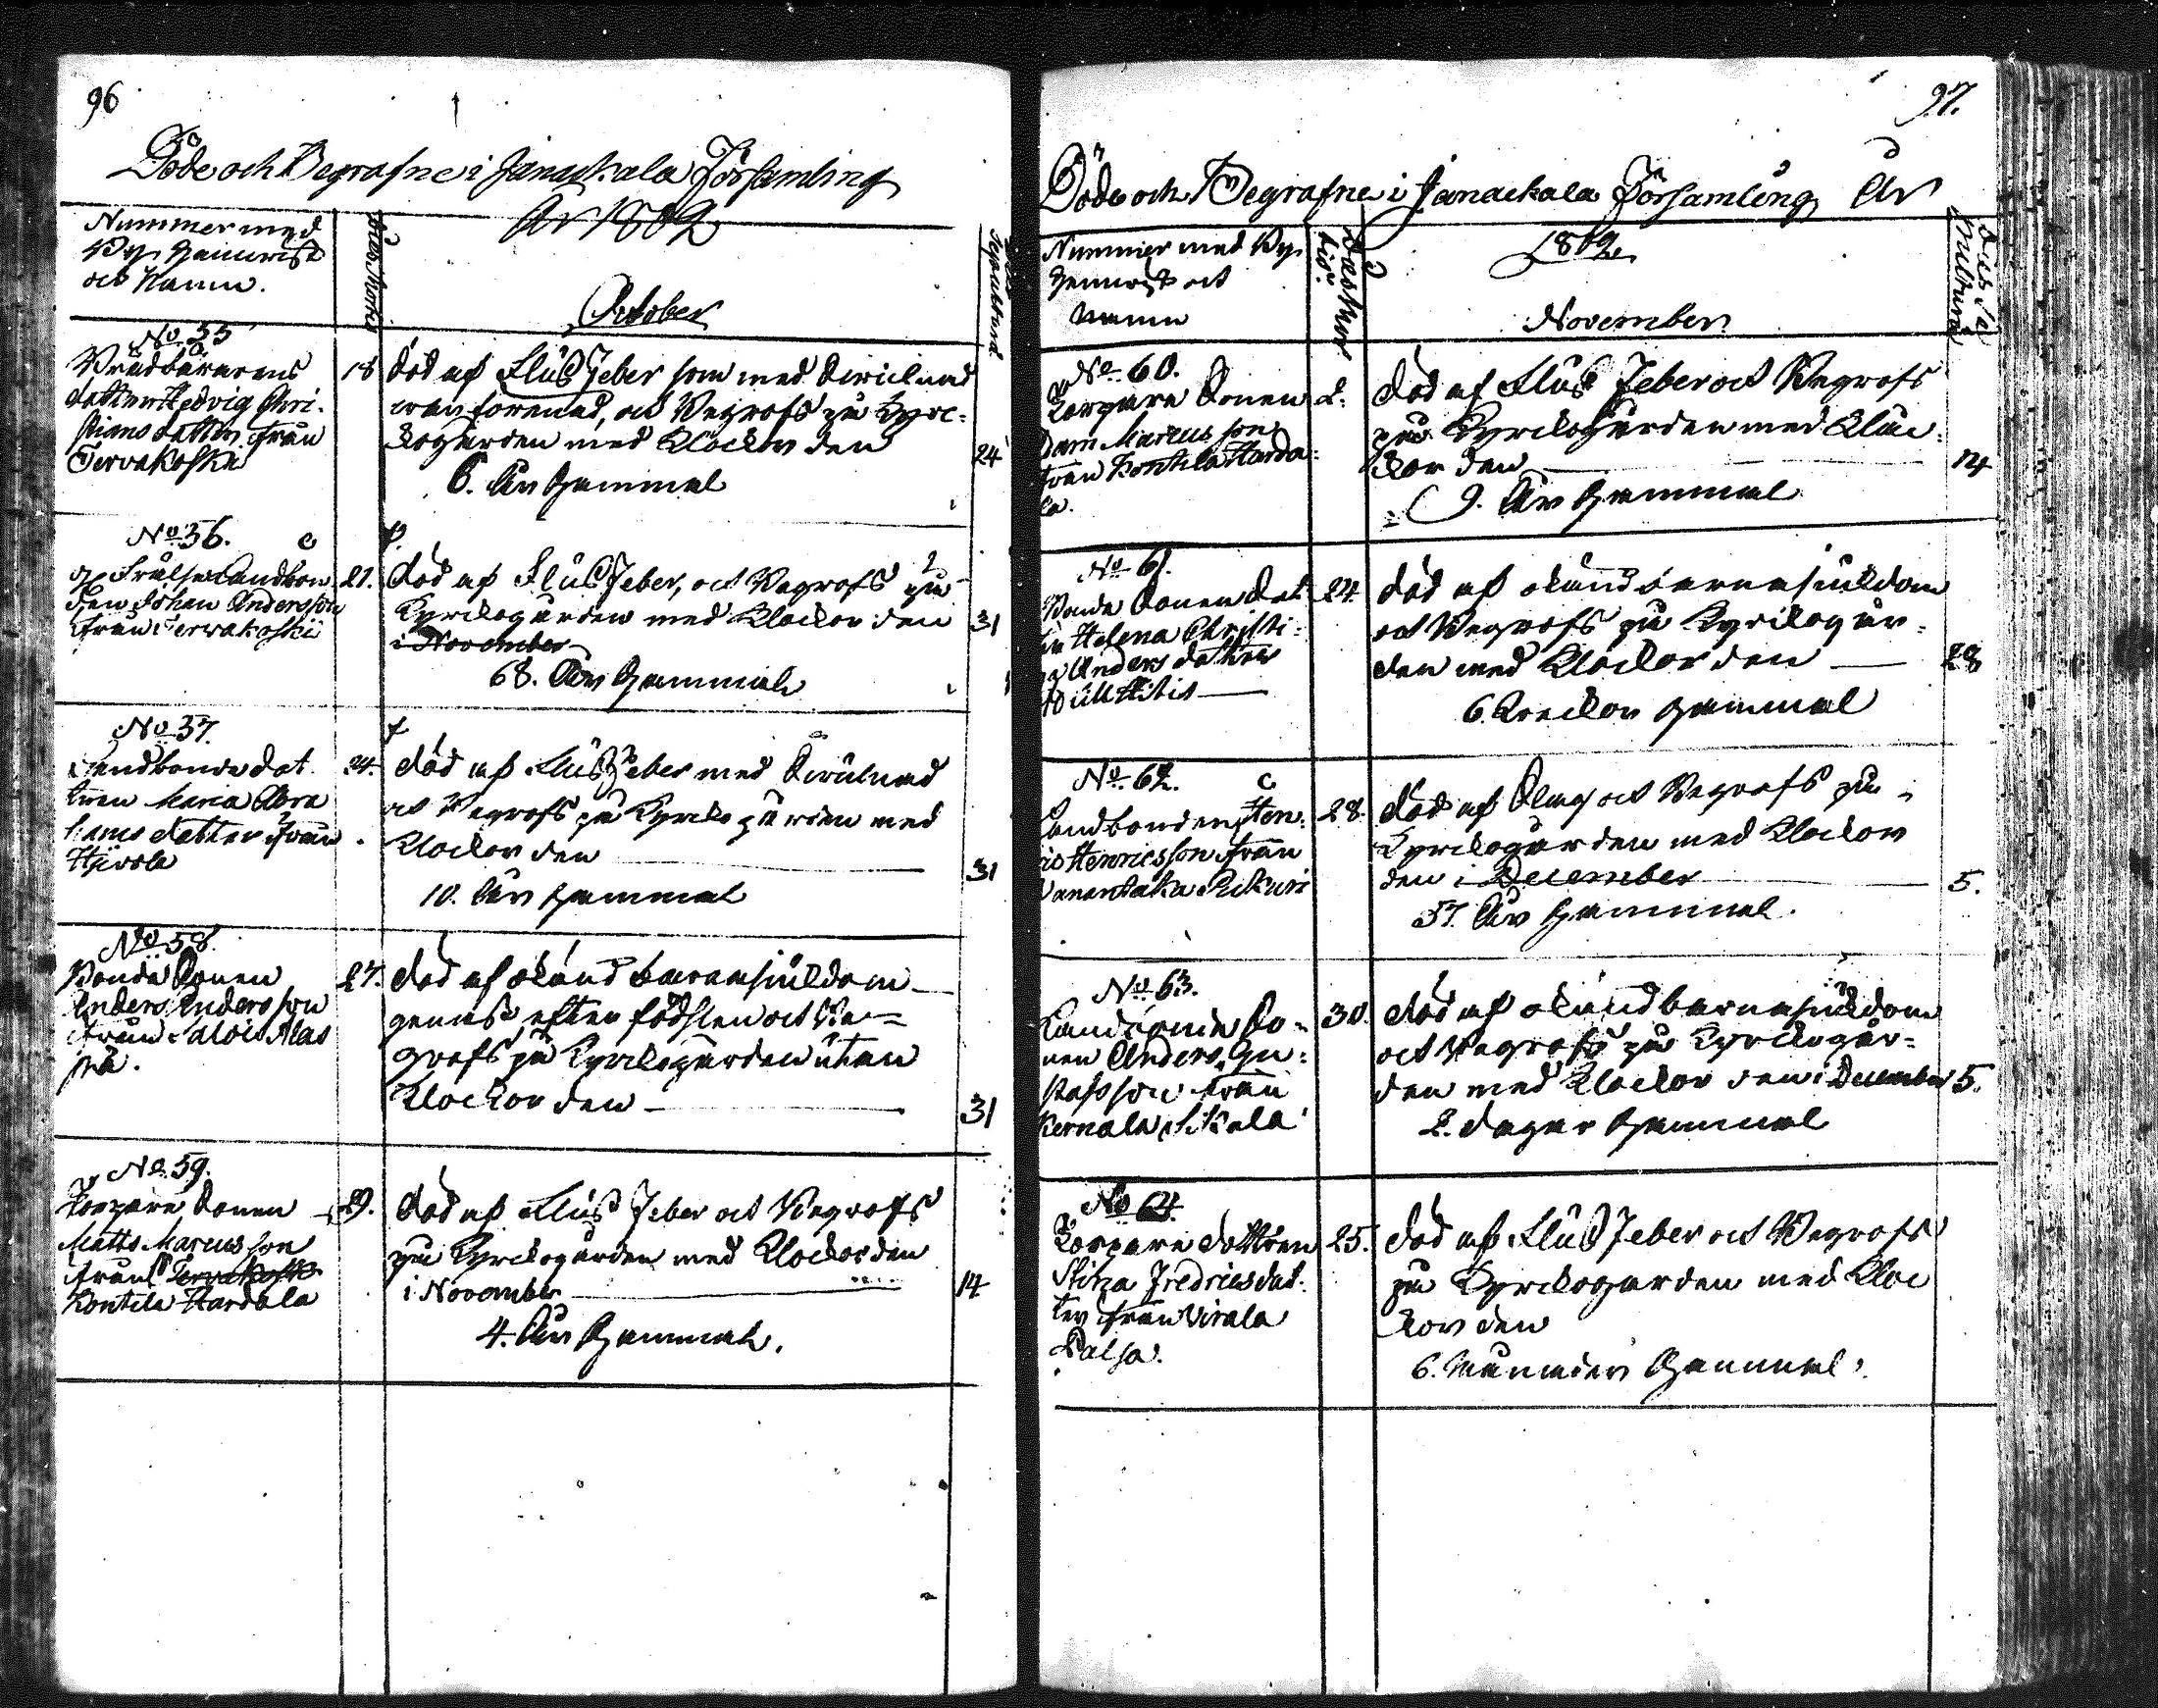 96
Döde och Begrafne i Janackala Församling
År 1802
Nummer med
By, Hemvist
och Namn.
October
No 55
dotter Hedvig Chri-
stians dotter från
Tervakoski
18
död af Flus Feber som med
och Begrofs på Kyrc-
kogården med Klockor den
24
6. År Gammal
No 56.
Frälse Landbon-
den Johan Andersson
från Tervakoski
21.
död af Flus Feber, och Begrofs på
Kyrckogården med Klockor den
31
i November
68. År Gammal
No 57.
Landbonde dot-
tren Maria Abra
hams dotter från
24.
död af Flus Feber med
och Begrofs på Kyrcko gården med
Klockor den
31
10. År gammal
No 58.
Bonde Sonen
Anders Andersson
från
27.
död af okänd barnasjukdom
genast efter födslen och Be-
grofs på Kyrckogården utan
Klockor den
31
No 59.
Torpare Sonen
Matts Marcusson
från Tervakoski
Kontila Hardala
29.
död af Flus Feber och Begrofs
på Kyrckogården med Klockor den
i November
14
4. År Gammal.
97.
Döde och Begrafne i Janackala Församling År
1802
Nummer med By,
Hemvist och
Namn
November
No 60.
Torpare Sonen
Marcusson
från Kontila Harda-
la.
2.
död af Flus Feber och Begrofs
på Kyrckogården med Kloc-
kor den
14
9. År Gammal
No 61.
Bonde Sonen Dot-
Helena Christi-
na Anders dotter
24
död af okänd barnasjukdom
och Begrofs på Kyrckogår-
den med Klockor den
28
6. Veckor gammal
No 62.
Landbonden Hen-
ric Henricsson från
28.
död af Slag och Begrofs på
Kyrckogården med Klockor
den i December
5.
57. År Gammal.
No 63.
Landbonde So-
nen Anders Gu-
stafsson från
Kernala Sikala
30.
död af okänd barnasjukdom
och Begrofs på Kyrckogår-
den med Klockor den i December 5.
2. dagar Gammal
No 64.
Torpare dottren
Stina Fredrics dot-
ter från Virala
25.
död af Flus Feber och Begrofs
på Kyrckogården med Kloc
kor den
6. Månader Gammal.